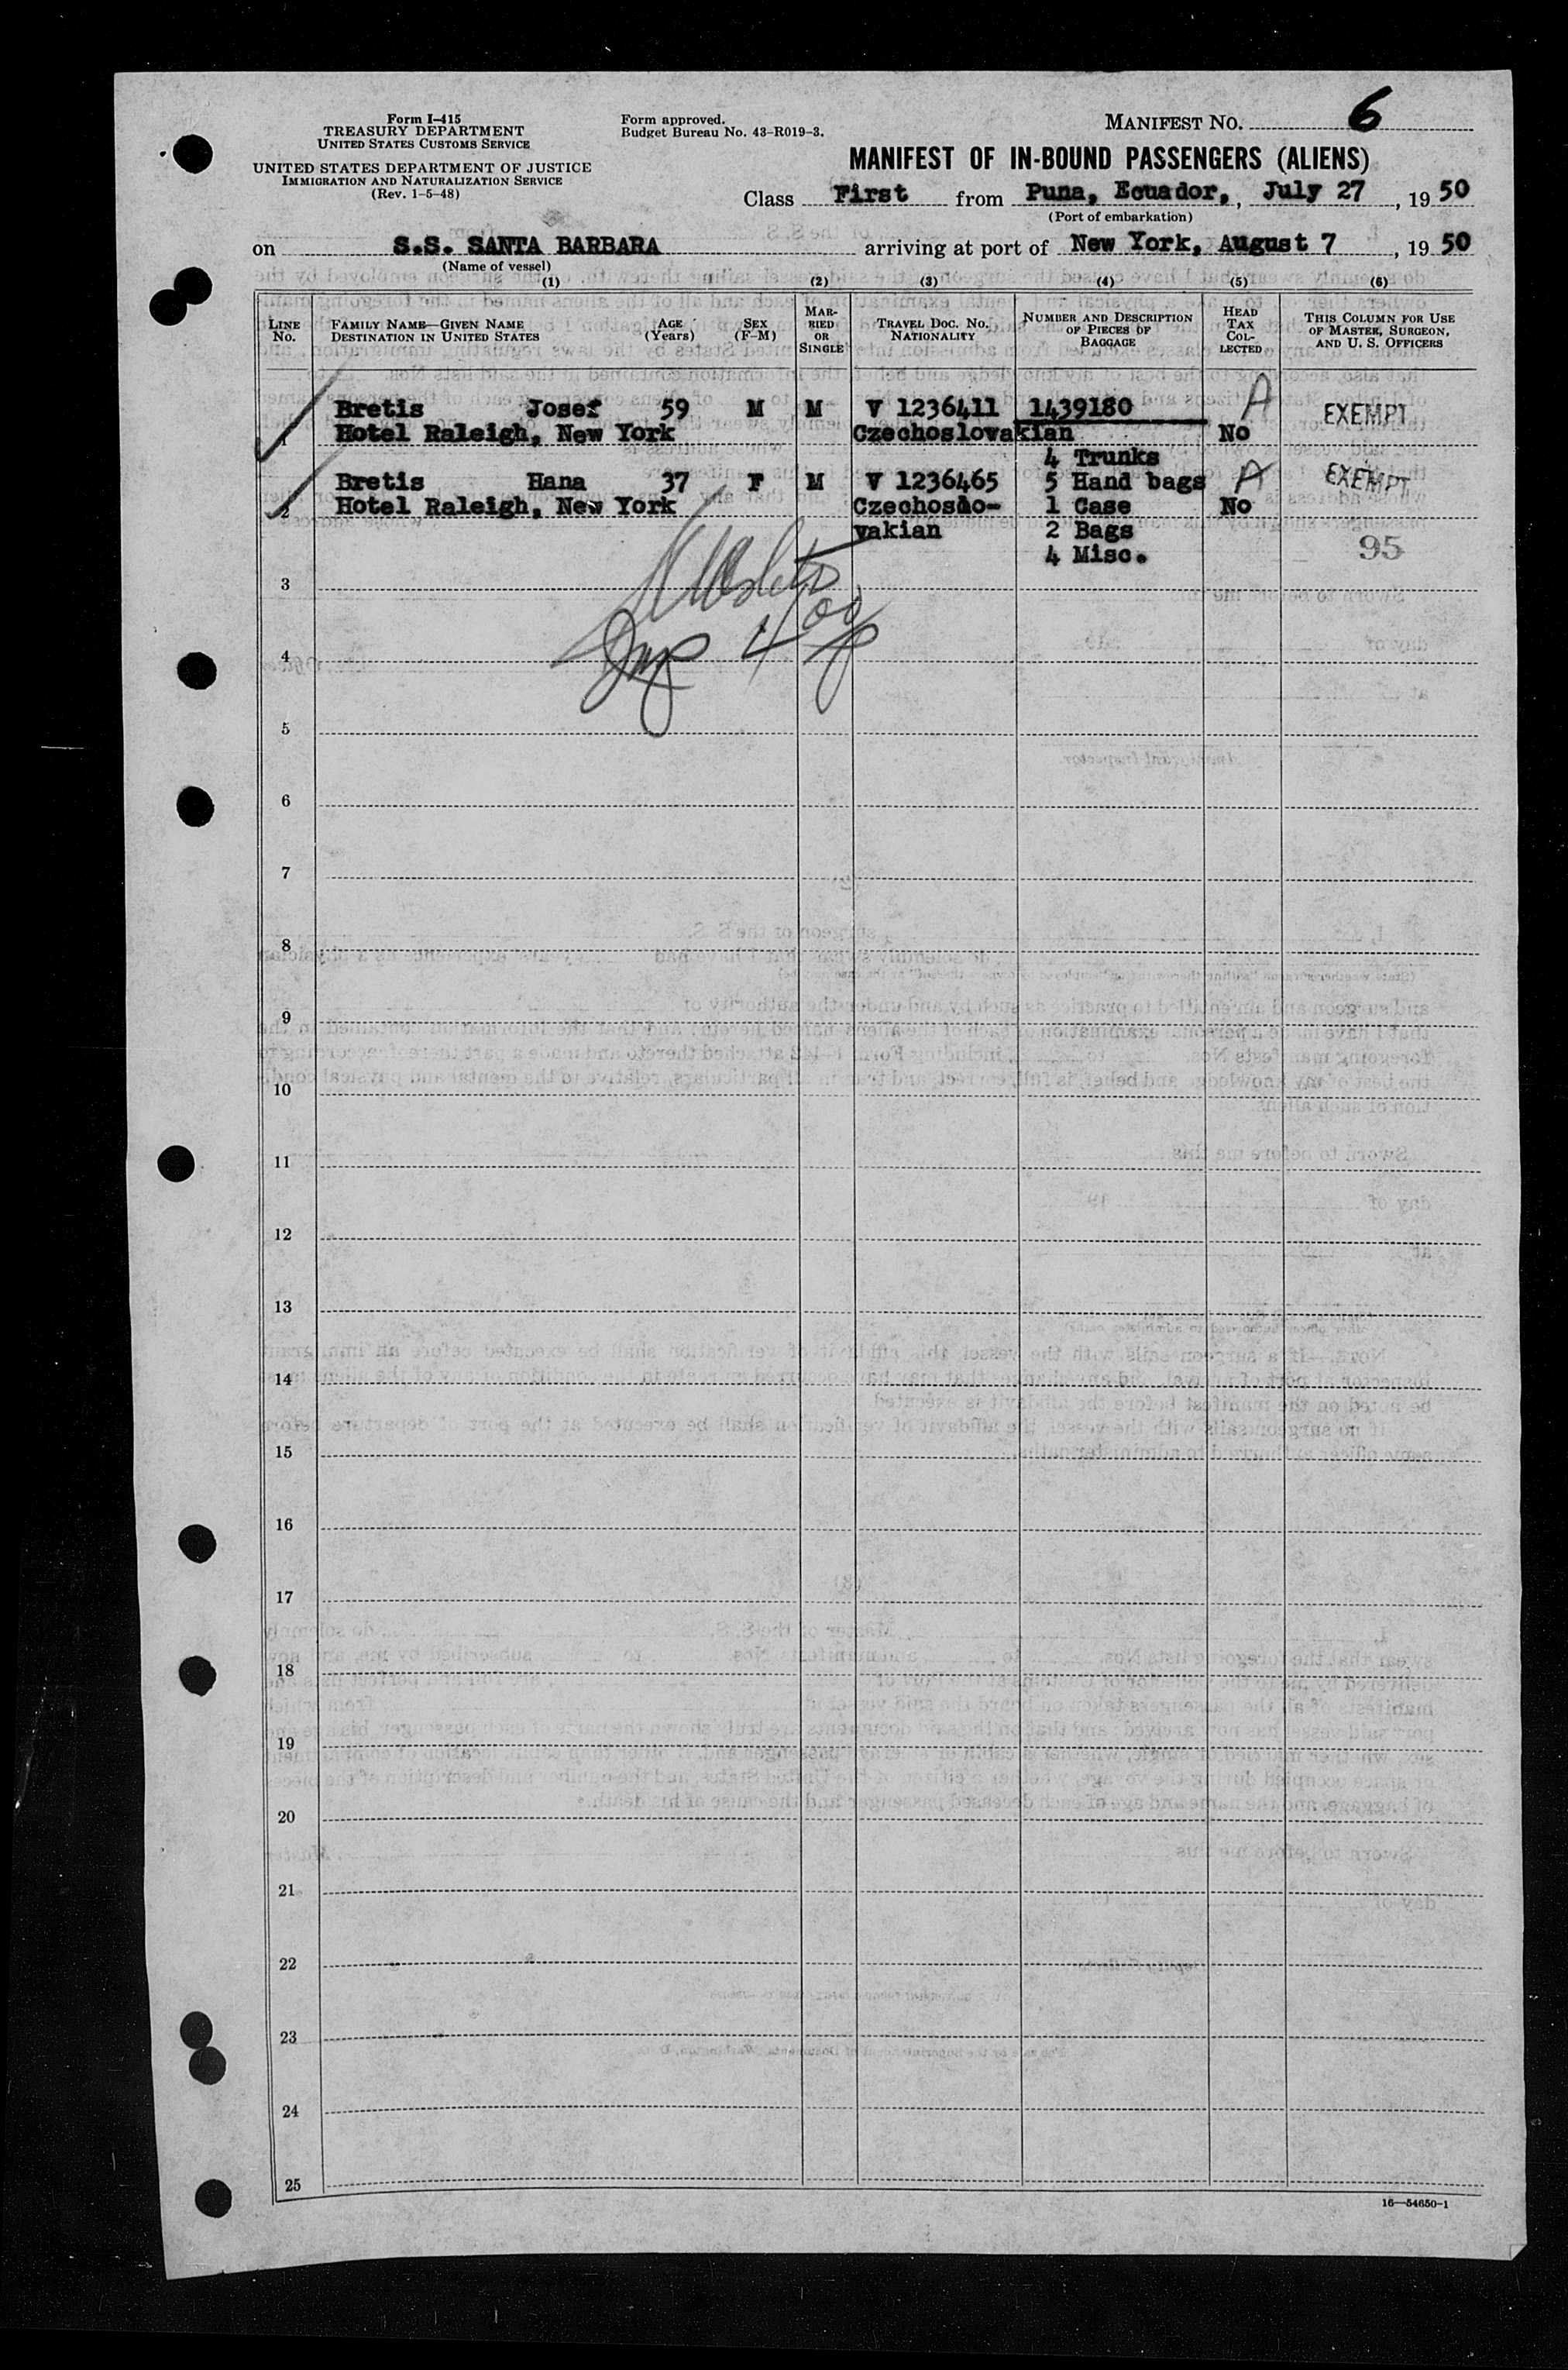 Form I-415
TREASURY DEPARTMENT
UNITED STATES CUSTOMS SERVICE
UNITED STATES DEPARTMENT OF JUSTICE
IMMIGRATION AND NATURALIZATION SERVICE
(Rev. 1-5-48)
Form approved.
Budget Bureau No. 43-R019-3.
MANIFEST NO. 6
MANIFEST OF IN-BOUND PASSENGERS (ALIENS)
Class First from Puna, Ecuador, , July 27 , 19 50
(Port of embarkation)
on S.S. SANTA BARBARA arriving at port of New York, August 7 , 19 50
(Name of vessel)
(1) (2) (3) (4) (5) (6)
LINE No. FAMILY NAME—GIVEN NAME DESTINATION IN UNITED STATES AGE (Years) SEX (F-M) MARRIED OR SINGLE TRAVEL DOC. NO. NATIONALITY NUMBER AND DESCRIPTION OF PIECES OF BAGGAGE HEAD TAX COLLECTED THIS COLUMN FOR USE OF MASTER, SURGEON, AND U. S. OFFICERS
Bretis Josef 59 M M V 1236411 1439180 A EXEMPT
1 Hotel Raleigh, New York Czechoslovakian No
4 Trunks
Bretis Hana 37 F M V 1236465 5 Hand bags A EXEMPT
2 Hotel Raleigh, New York Czechoslo- 1 Case No
vakian 2 Bags
4 Misc. 95
3
4
5
6
7
8
9
10
11
12
13
14
15
16
17
18
19
20
21
22
23
24
25
16—54650-1